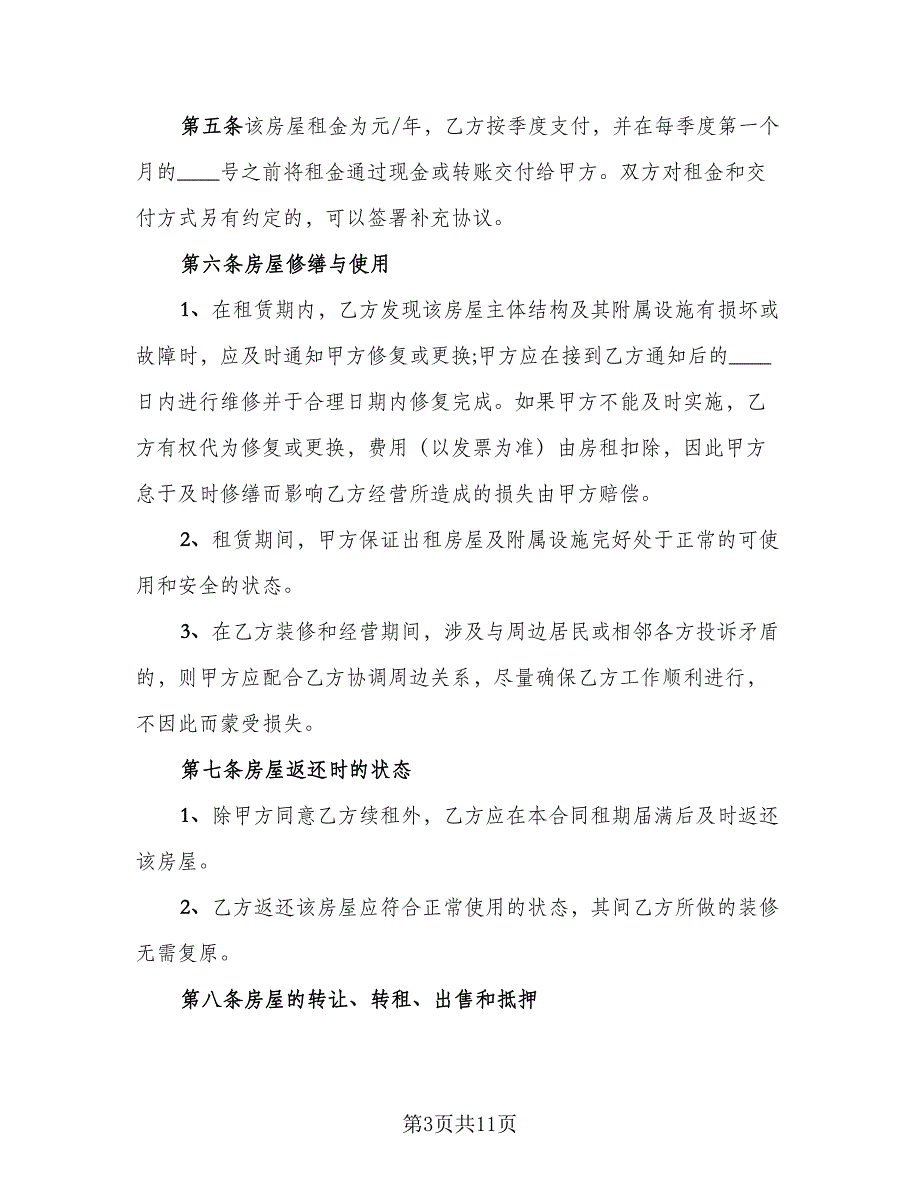 第五条该房屋租金为元/年，乙方按季度支付，并在每季度第一个
月的____号之前将租金通过现金或转账交付给甲方。双方对租金和交
付方式另有约定的，可以签署补充协议。
第六条房屋修缮与使用
1、在租赁期内，乙方发现该房屋主体结构及其附属设施有损坏或
故障时，应及时通知甲方修复或更换;甲方应在接到乙方通知后的____
日内进行维修并于合理日期内修复完成。如果甲方不能及时实施，乙
方有权代为修复或更换，费用（以发票为准）由房租扣除，因此甲方
怠于及时修缮而影响乙方经营所造成的损失由甲方赔偿。
2、租赁期间，甲方保证出租房屋及附属设施完好处于正常的可使
用和安全的状态。
3、在乙方装修和经营期间，涉及与周边居民或相邻各方投诉矛盾
的，则甲方应配合乙方协调周边关系，尽量确保乙方工作顺利进行，
不因此而蒙受损失。
第七条房屋返还时的状态
1、除甲方同意乙方续租外，乙方应在本合同租期届满后及时返还
该房屋。
2、乙方返还该房屋应符合正常使用的状态，其间乙方所做的装修
无需复原。
第八条房屋的转让、转租、出售和抵押
第3页共11页